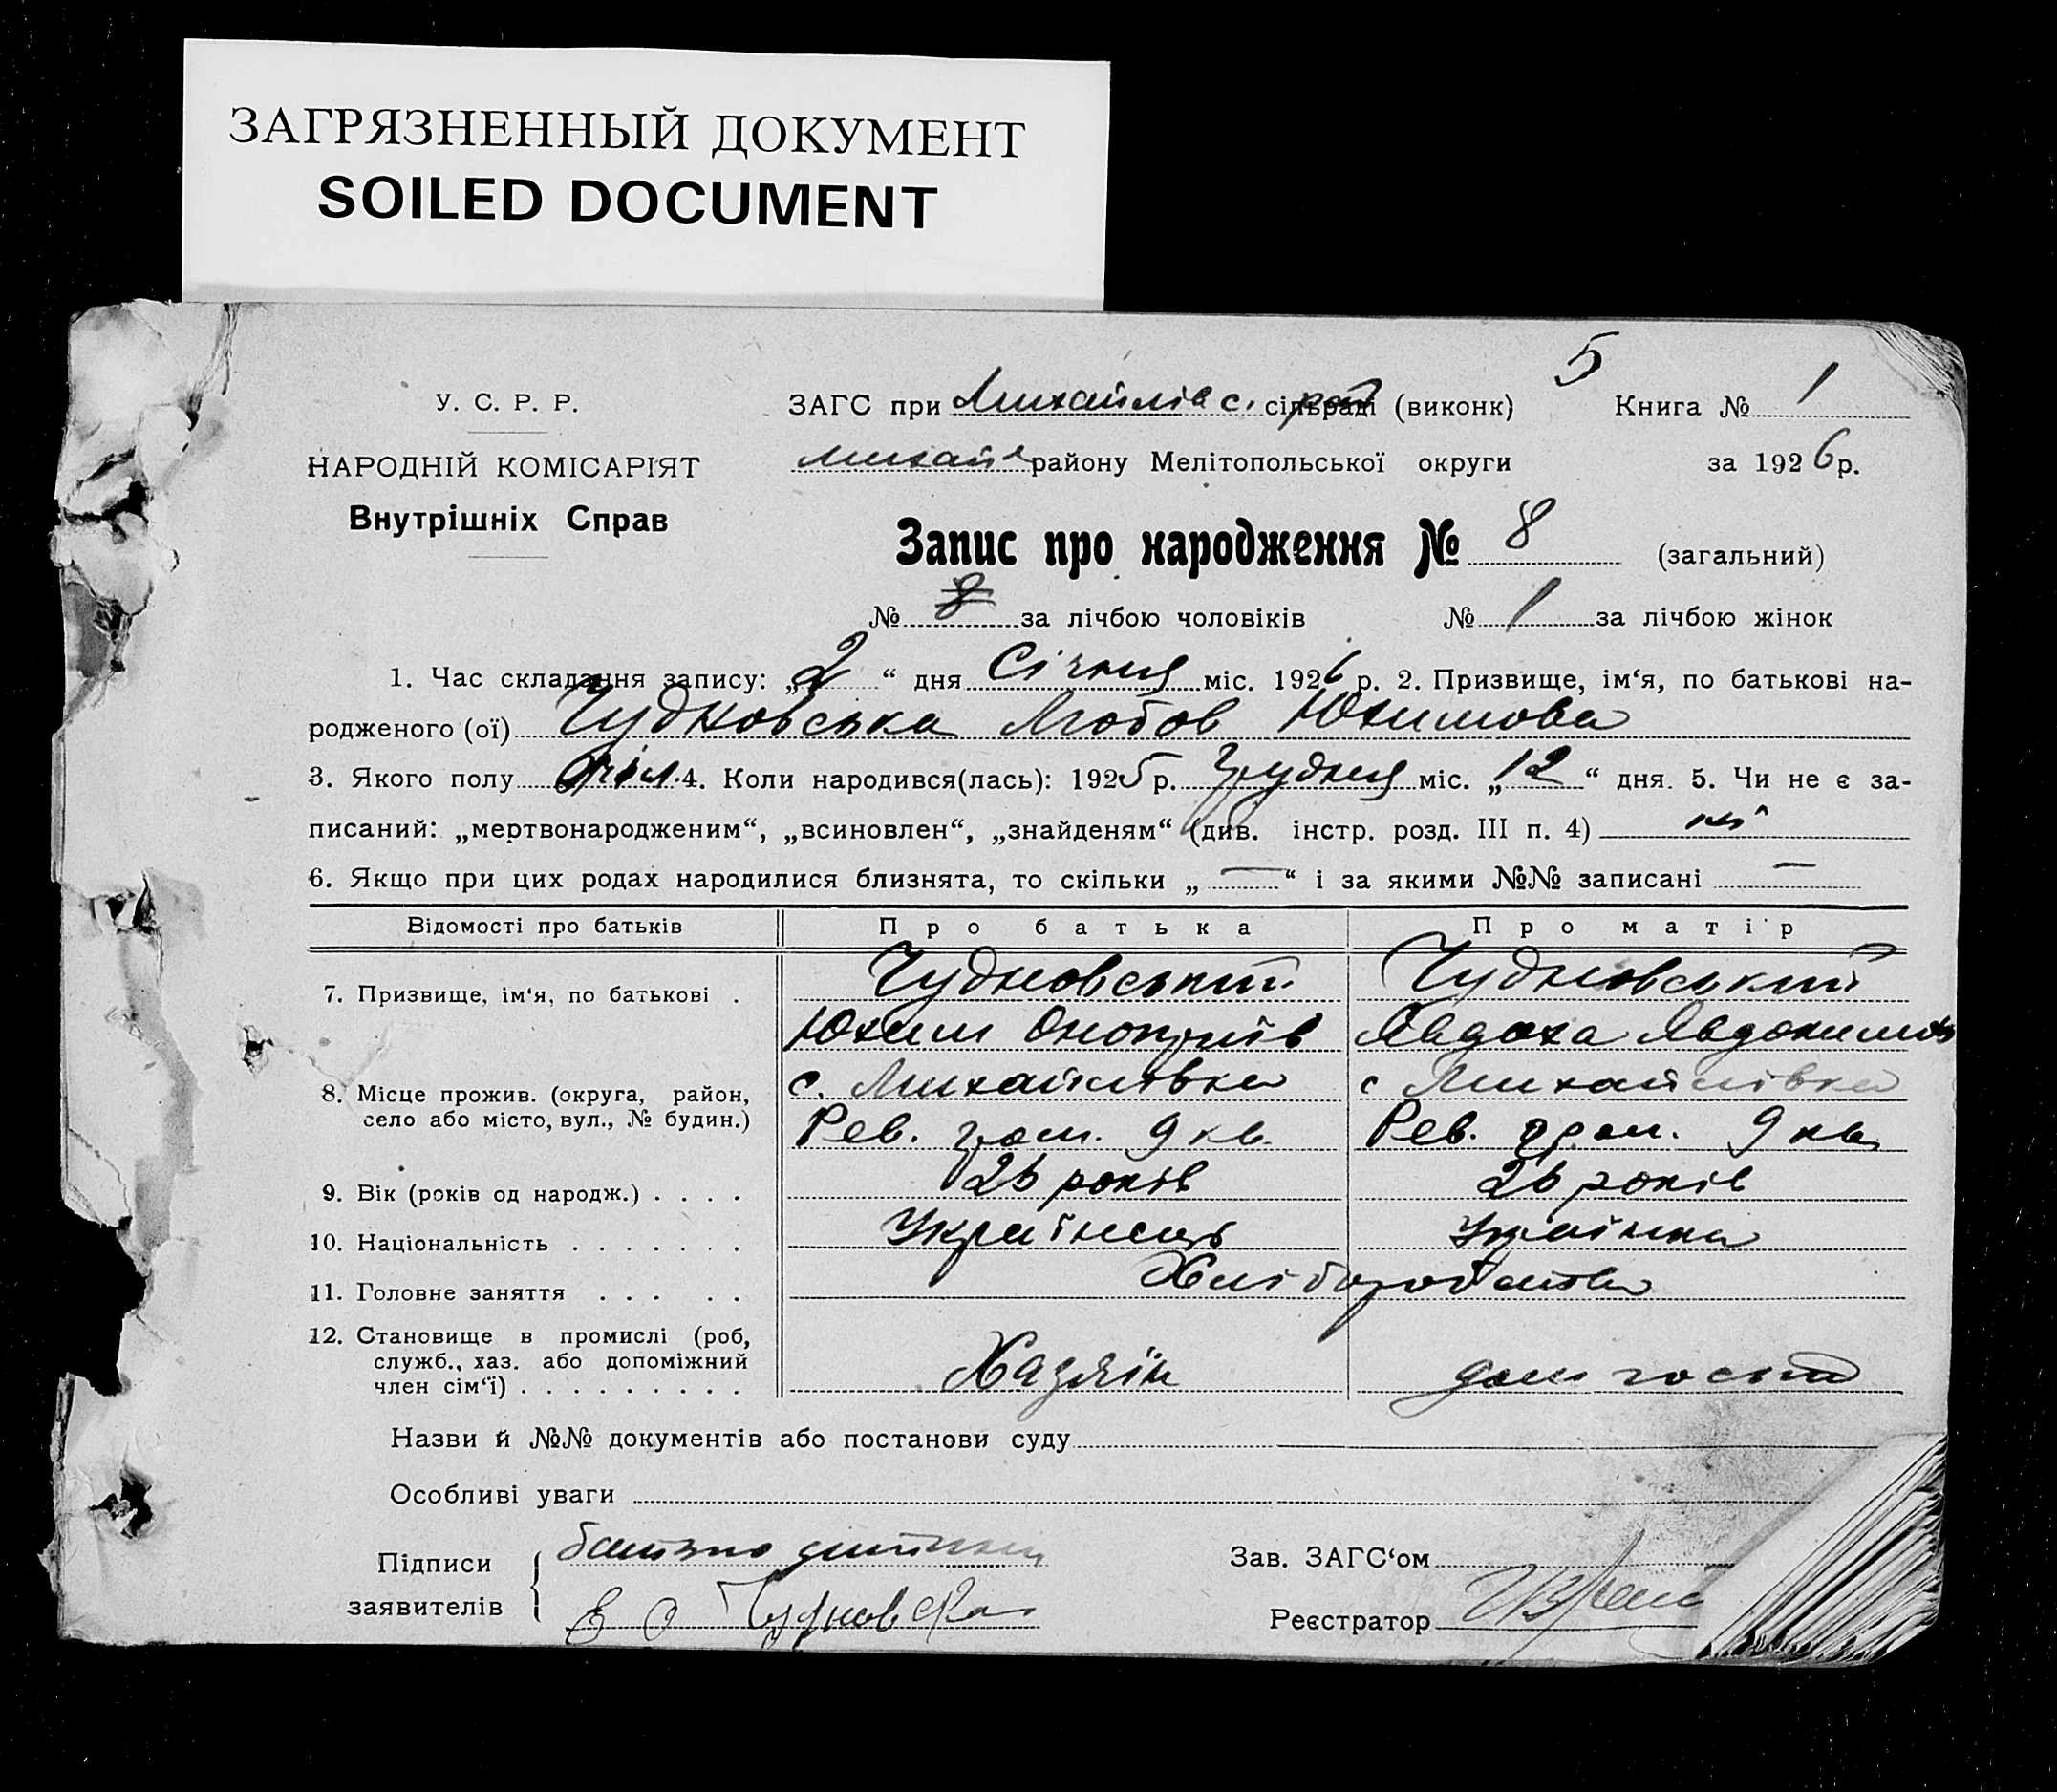 ЗАГРЯЗНЕННЫЙ ДОКУМЕНТ
SOILED DOCUMENT
5
У. С. Р. Р.
ЗАГС при Михайлів с. сільраді (виконк) Книга № 1
НАРОДНІЙ КОМІСАРІЯТ
Михай району Мелітопольської округи за 1926 р.
Внутрішніх Справ
Запис про народження № 8 (загальний)
№ 8 за лічбою чоловіків № 1 за лічбою жінок
1. Час складання запису: „2“ дня Січня міс. 1926 р. 2. Призвище, ім‘я, по батькові на-
родженого (ої) Чудновська Любов Юхимова
3. Якого полу 4. Коли народився(лась): 1925 р. Грудня міс. „12“ дня. 5. Чи не є за-
писаний: „мертвонародженим“, „всиновлен“, „знайденям“ (див. інстр. розд. III п. 4) ні
6. Якщо при цих родах народилися близнята, то скільки „—“ і за якими №№ записані —
Відомості про батьків Про батька Про матір
7. Призвище, ім‘я, по батькові . Чудновський Чудновський
Юхим Оноприїв Явдоха Явдокимов
8. Місце прожив. (округа, район, с. Михайлівка с Михайлівка
село або місто, вул., № будин.) Рев. гром. 9 кв. Рев. гром. 9 кв
9. Вік (років од народж.) . . . . 26 років 26 років
10. Національність . . . . . . . Українець Українка
11. Головне заняття . . . . . Хліборобство
12. Становище в промислі (роб,
служб., хаз. або допоміжний Хазяїн дом госп
член сім‘ї) . . . . . . . . .
Назви й №№ документів або постанови суду
Особливі уваги
Підписи батько дитини Зав. ЗАГС‘ом
заявителів Е О Чудновская Реєстратор